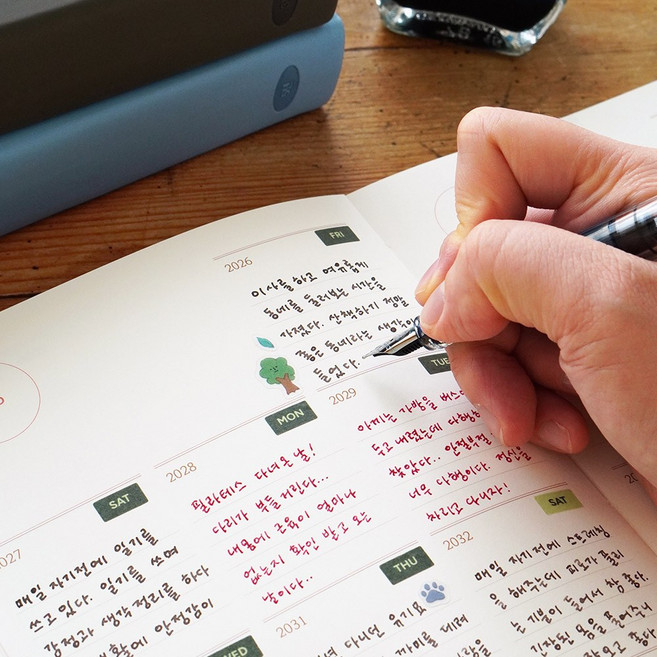 2026
FRI
이사를 하고 여유롭게
동네를 둘러보는 시간을
가졌다. 산책하기 정말
좋은 동네라는 생각이
들었다.
2027
SAT
매일 자기전에 일기를
쓰고 있다. 일기를 쓰며
감정과 생각 정리를 하다
안정감이
2028
MON
필라테스 다녀온 날!
다리가 부들거린다...
내 몸에 근육이 얼마나
없는지 확인 받고 오는
날이다..
2029
TUE
아끼는 가방을 버스에
두고 내렸는데 다행히
찾았다.. 안절부절
너무 다행이다. 정신을
차리고 다니자!
WED
2031
THU
다니던
2032
SAT
매일 자기전에 스트레칭
을 해주는데 피로가 풀리
는 기분이 들어서 참 좋다.
긴장된 몸을 풀어주니
좋다